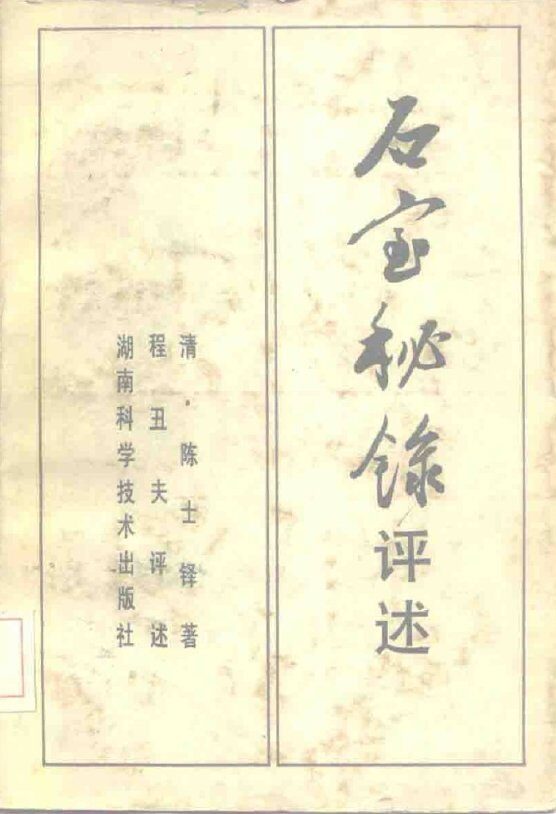 石室秘录评述
清·陈士铎著
程丑夫评述
湖南科学技术出版社